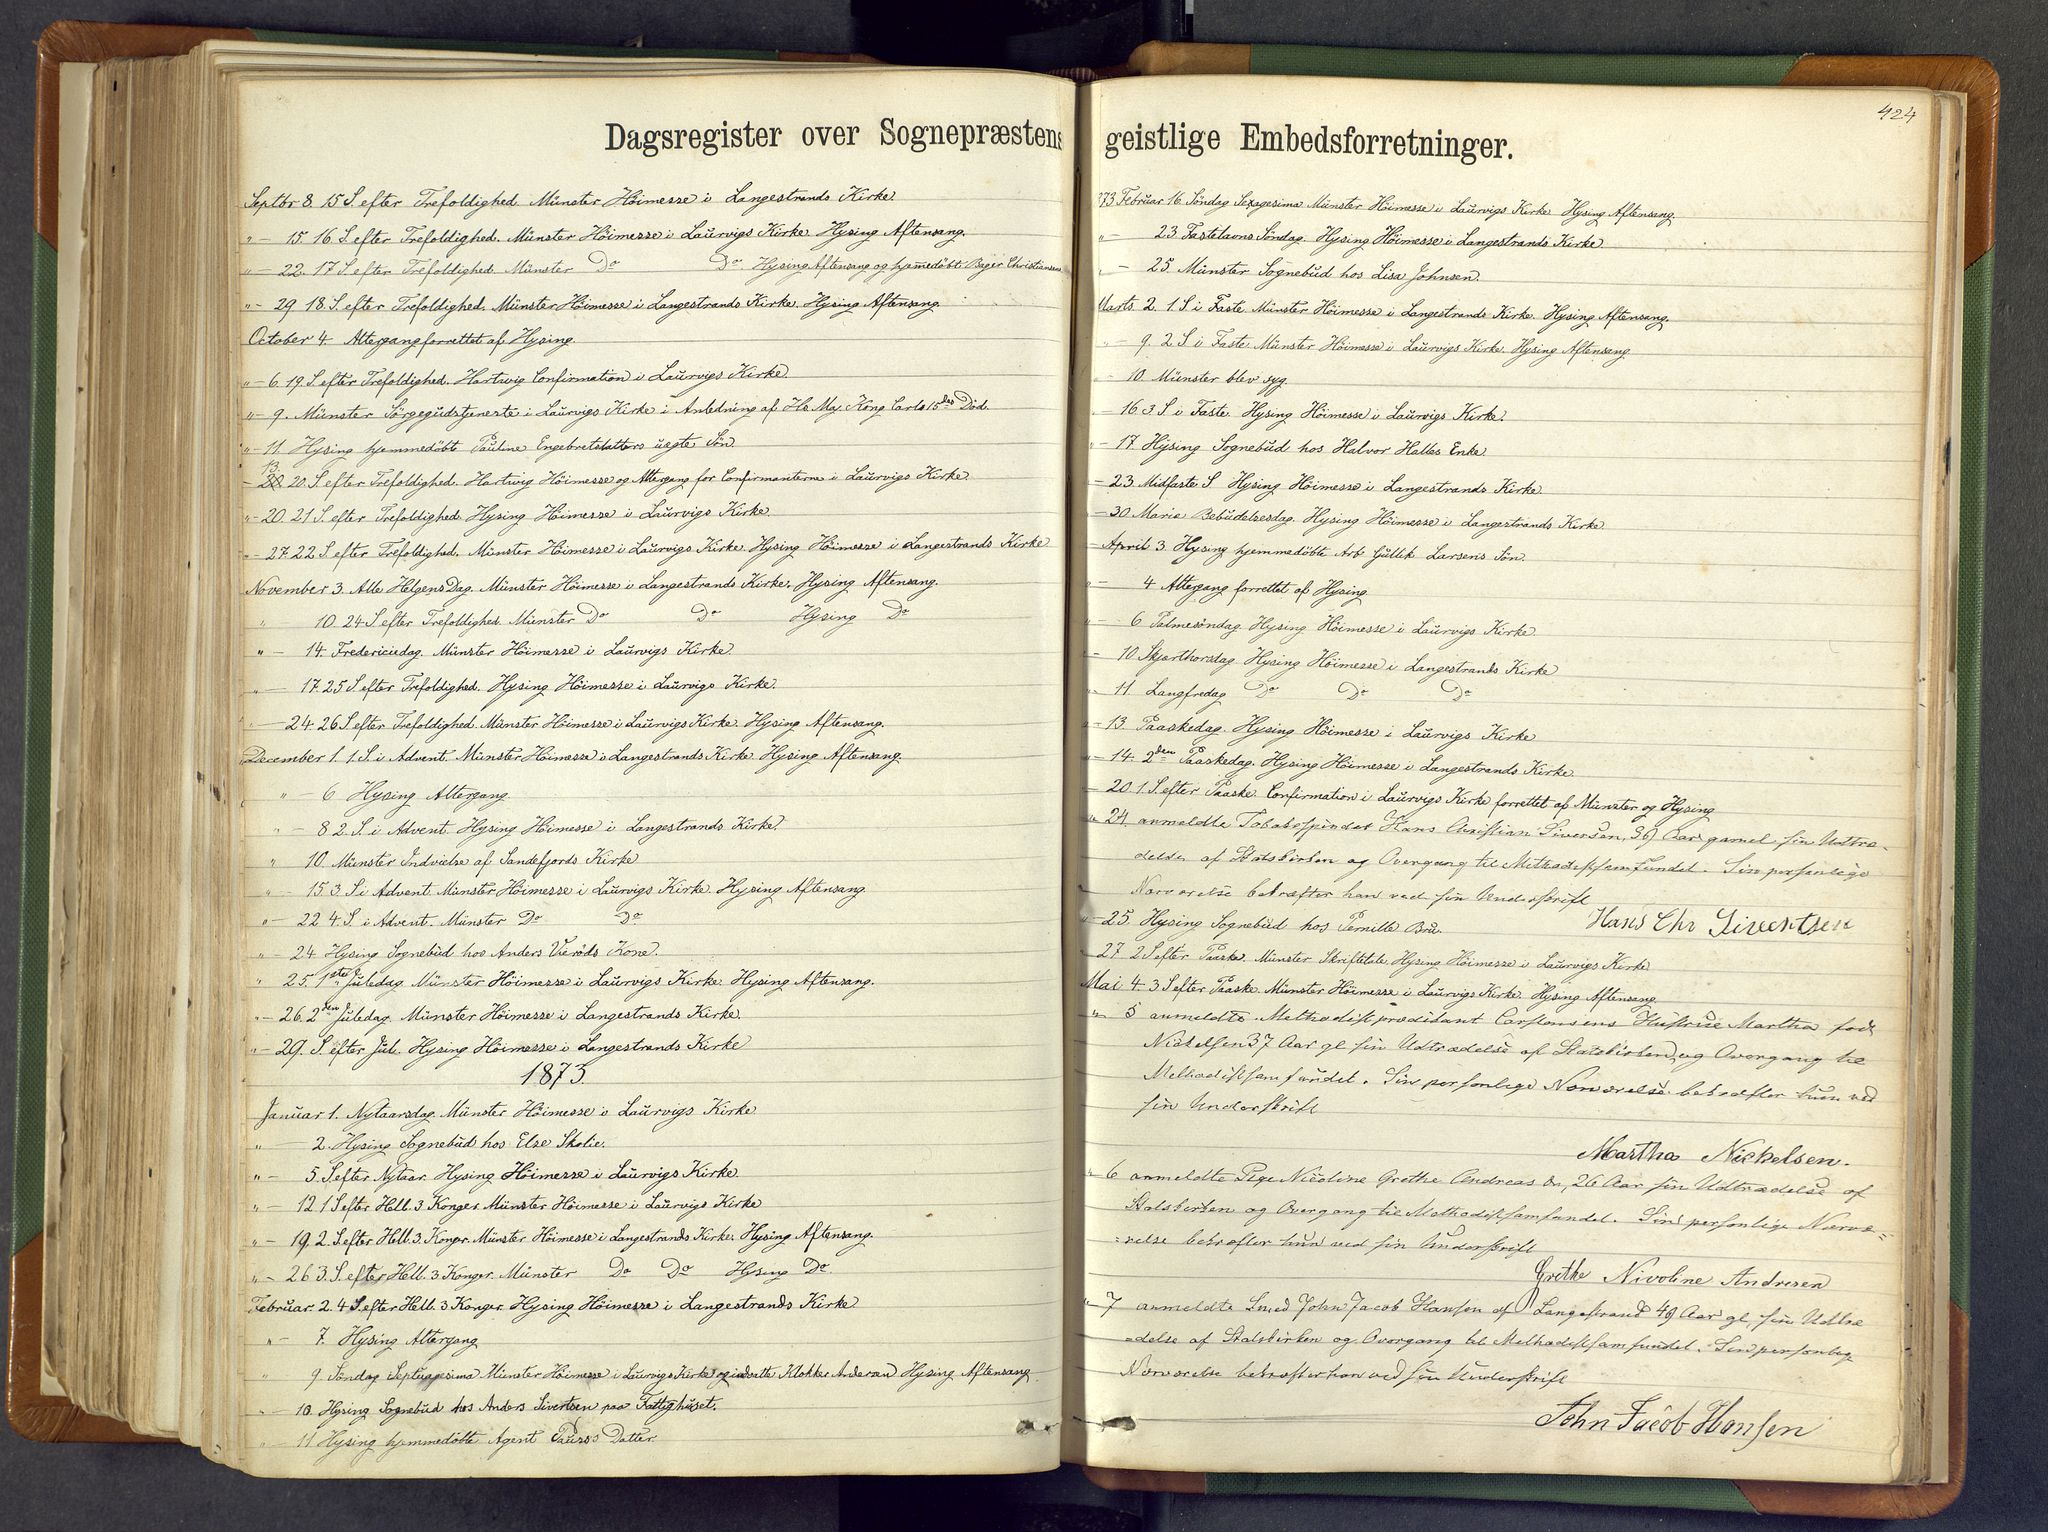 Dagsregister over Sognepræstens
Septbr 8. 15 S. efter Trefoldighed. Münster Höimesse i Langestrands Kirke.
" — 15. 16. S. efter Trefoldighed. Münster Höimesse i Laurvigs Kirke. Hysing Aftensang.
" — 22. 17 S. efter Trefoldighed. Münster Do Do Hysing Aftensang og hjemmedöbt Bager Christiansens
" — 29. 18. S. efter Trefoldighed. Münster Höimesse i Langestrands Kirke. Hysing Aftensang
October 4. Altergang forrettet af Hysing.
" — 6. 19. S. efter Trefoldighed. Hartwig Confirmation i Laurvigs Kirke.
" — 9. Münster Sörgegudstjeneste i Laurvigs Kirke i Anledning af Hs. Maj. Kong Carls 15des Död.
" — 11. Hysing hjemmedöbte Pauline Engebretsdatters uægte Sön
— 13. 20. S. efter Trefoldighed. Hartwig Höimesse og Altergang for Confirmanterne i Laurvigs Kirke
" — 20. 21 S. efter Trefoldighed. Hysing Höimesse i Laurvigs Kirke.
" — 27. 22 S. efter Trefoldighed. Münster Höimesse i Laurvigs Kirke. Hysing Höimesse i Langestrands Kirke
November 3. Alle Helgens Dag. Münster Höimesse i Langestrands Kirke. Hysing Aftensang.
" 10. 24 S. efter Trefoldighed. Münster Do Do Hysing Do
" — 14. Fredericiedag. Münster Höimesse i Laurvigs Kirke.
" — 17. 25 S. efter Trefoldighed. Hysing Höimesse i Laurvigs Kirke.
— 24. 26 S. efter Trefoldighed. Münster Höimesse i Laurvigs Kirke. Hysing Aftensang.
December 1. 1. S. i Advent. Münster Höimesse i Langestrands Kirke. Hysing Aftensang.
" — 6 Hysing Altergang.
" — 8 2. S. i Advent. Hysing Höimesse i Langestrands Kirke.
" 10. Münster Indvielse af Sandefjords Kirke
" — 15 3. S. i Advent. Münster Höimesse i Laurvigs Kirke. Hysing Aftensang.
" — 22 4. S. i Advent. Münster Do Do
— 24. Hysing Sognebud hos Anders Vieröds Kone.
" 25. 1ste Juledag. Münster Höimesse i Laurvigs Kirke. Hysing Aftensang.
" — 26. 2den Juledag. Münster Höimesse i Langestrands Kirke.
" — 29. S. efter Jul. Hysing Höimesse i Langestrands Kirke
1873.
Januar 1. Nytaarsdag. Münster Höimesse i Laurvigs Kirke
" — 2. Hysing Sognebud hos Else Skolie.
" — 5 S. efter Nytaar. Hysing Höimesse i Laurvigs Kirke.
" — 12. 1 S. efter Hell. 3 Konger. Münster Höimesse i Laurvigs Kirke
" — 19. 2. S. efter Hell. 3 Konger. Münster Höimesse i Langestrands Kirke. Hysing Aftensang.
" — 26 3. S. efter Hell. 3 Konger. Münster Do Do Hysing Do
Februar. 2. 4 S. efter Hell. 3 Konger. Hysing Höimesse i Langestrands Kirke
" — 7. Hysing Altergang
" 9. Söndag Septuagesima Münster Höimesse i Laurvigs Kirke og indsatte Klokker Andersen Hysing Aftensang.
" — 10. Hysing Sognebud hos Anders Sivertsen paa Fattighuset.
" — 11 Hysing hjemmedöbte Agent Datter.
424
geistlige Embedsforretninger.
873 Februar 16. Söndag Sexagesima Münster Höimesse i Laurvigs Kirke Hysing Aftensang.
" — 23. Fastelavns Söndag. Hysing Höimesse i Langestrands Kirke
" — 25. Münster Sognebud hos Lisa Johnsen.
Marts 2. 1. S i Faste Münster Höimesse i Langestrands Kirke. Hysing Aftensang.
" — 9. 2 S i Faste Münster Höimesse i Laurvigs Kirke. Hysing Aftensang.
— 10 Münster blev syg.
— 16 3. S i Faste. Hysing Höimesse i Laurvigs Kirke.
" — 17 Hysing Sognebud hos Halvor Halles Enke
— 23 Midfaste S Hysing Höimesse i Langestrands Kirke.
— 30 Mariæ Bebudelsesdag. Hysing Höimesse i Langestrands Kirke
April 3. Hysing hjemmedöbte Arb. Gullik Larsens Sön.
" — 4 Altergang forrettet af Hysing
" — 6 Palmesöndag. Hysing Höimesse i Laurvigs Kirke
" — 10 Skjærthorsdag. Hysing Höimesse i Langestrands Kirke
" — 11 Langfredag Do Do Do
" — 13. Paaskedag. Hysing Höimesse i Laurvigs Kirke
" — 14. 2den Paaskedag. Hysing Höimesse i Langestrands Kirke
— 20 1. S. efter Paaske. Confirmation i Laurvigs Kirke forrettet af Münster og Hysing
" 24. anmeldte Tobaksspinder Hans Christian Siversen, 36 Aar gamel sin Udtræ-
delse af Statskirken og Overgang til Methodistsamfundet. Sin personlige
Nærværelse bekræfter han ved sin Underskrift
Hans Chr Siventsen
" — 25. Hysing Sognebud hos Pernille Bru.
— 27 2 S. efter Paaske. Münster Skriftetale. Hysing Höimesse i Laurvigs Kirke
Mai 4. 3 S. efter Paaske. Münster Höimesse i Laurvigs Kirke. Hysing Aftensang.
" 5 anmeldte Methodistprædikant Carstensens Hustrue Martha fød
Nickelsen 37 Aar gl sin Udtrædelse af Statskirken og Overgang til
Methodistsamfundet. Sin personlige Nærværelse bekræfter hun ved
sin Underskrift
Martha Nickelsen.
" 6 anmeldte Pige Nicoline Grethe Andreas 26 Aar sin Udtrædelse af
Statskirken og Overgang til Methodistsamfundet. Sin personlige Nærvæ=
=relse bekræfter hun ved sin Underskrift
Grethe Nivoline Andresen
" 7 anmeldte Smed John Jacob Hansen af Langestrand 49 Aar gl, sin Udtræ
=delse af Statskirken og Overgang til Methodistsamfundet. Sin personlige
Nærværelse bekræfter han ved sin Underskrift
John Jacob Hansen